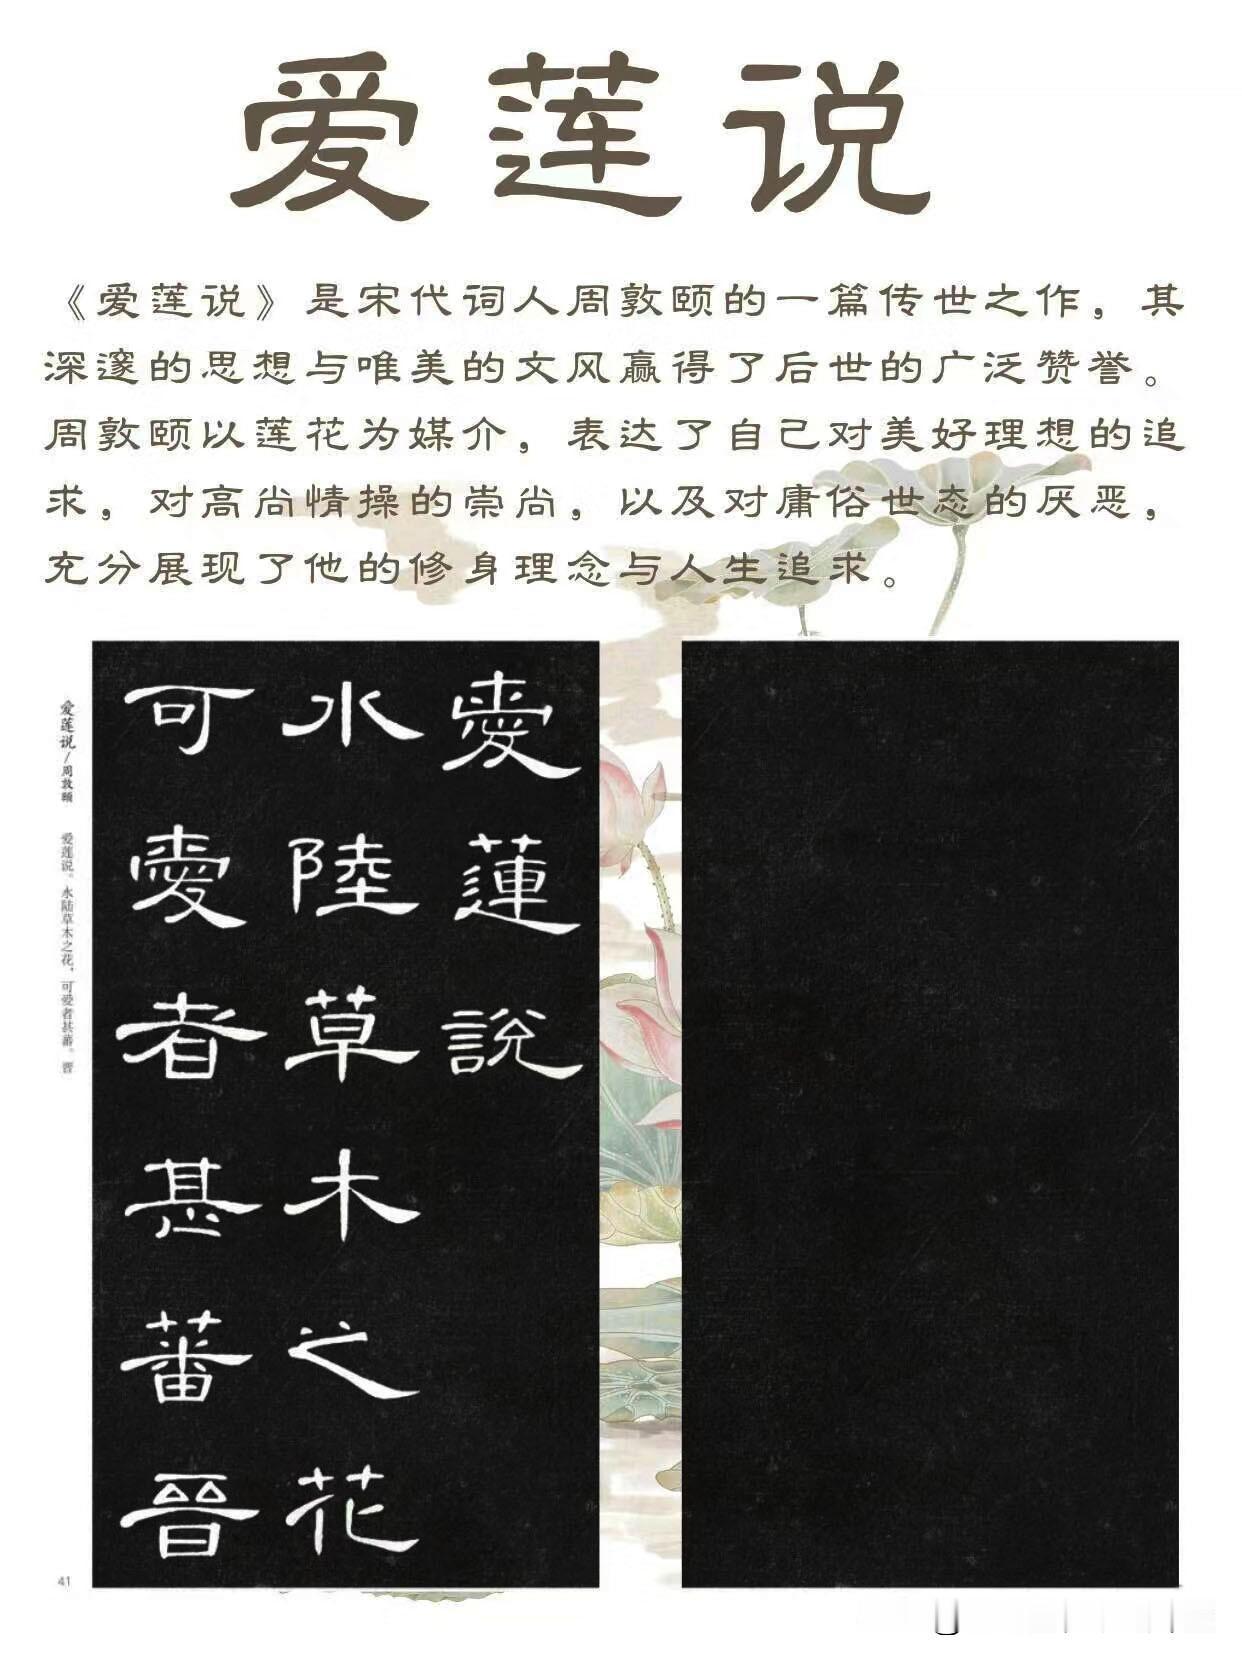 爱莲说
《爱莲说》是宋代词人周敦颐的一篇传世之作，其
深邃的思想与唯美的文风赢得了后世的广泛赞誉。
周敦颐以莲花为媒介，表达了自己对美好理想的追
求，对高尚情操的崇尚，以及对庸俗世态的厌恶，
充分展现了他的修身理念与人生追求。
愛蓮說
水陸草木之花
可愛者甚蕃晉
爱莲说/周敦颐
爱莲说。水陆草木之花，可爱者甚蕃。晋
41